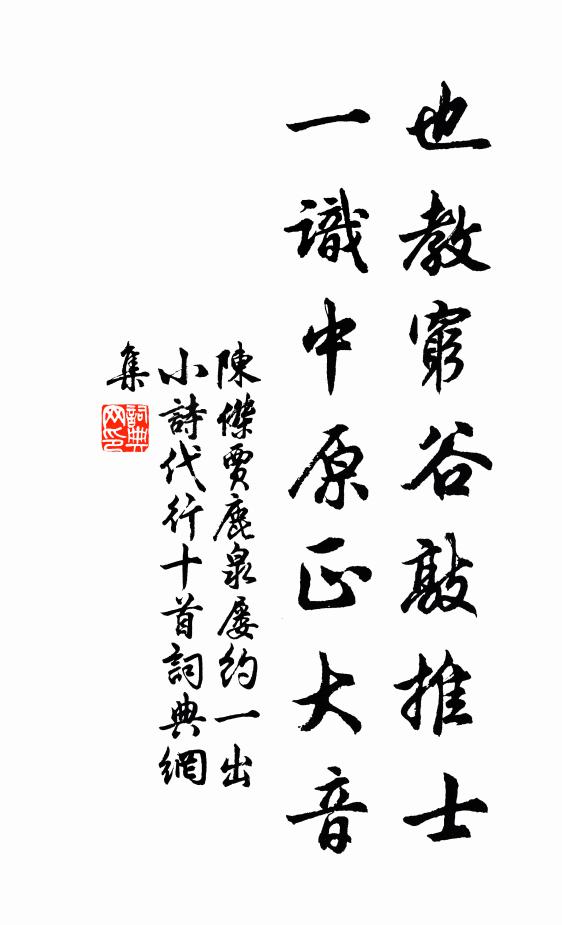 也教窮谷敲推士
一識中原正大音
陳傑賈鹿泉屢約一出
小詩代行十首詞典網
集
詞典
网印